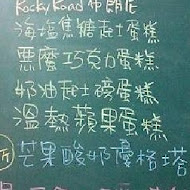 Rocky Road 布朗尼
海塩焦糖起士蛋糕
惡魔巧克力蛋糕
奶油起士磅蛋糕
溫熱蘋果蛋糕
芒果酸奶優格塔